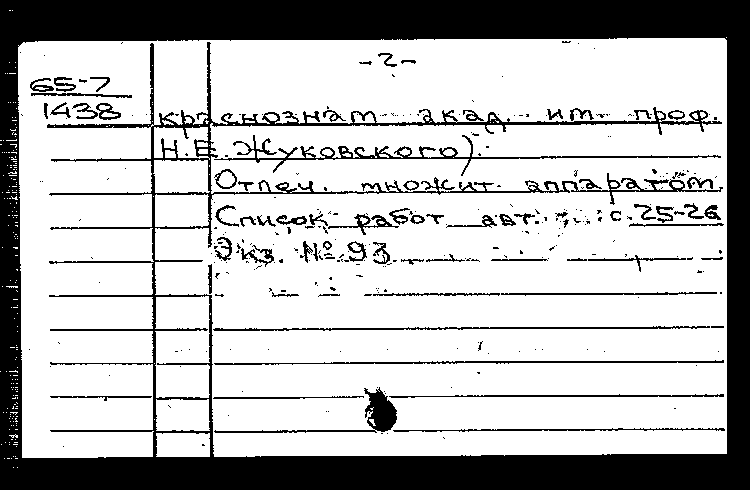 -2-
65-7
1438
краснознам. акад. им. проф.
Н.Е. Жуковского).
Отпеч. множит. аппаратом.
Список работ авт.: с. 25-26
Экз. № 93